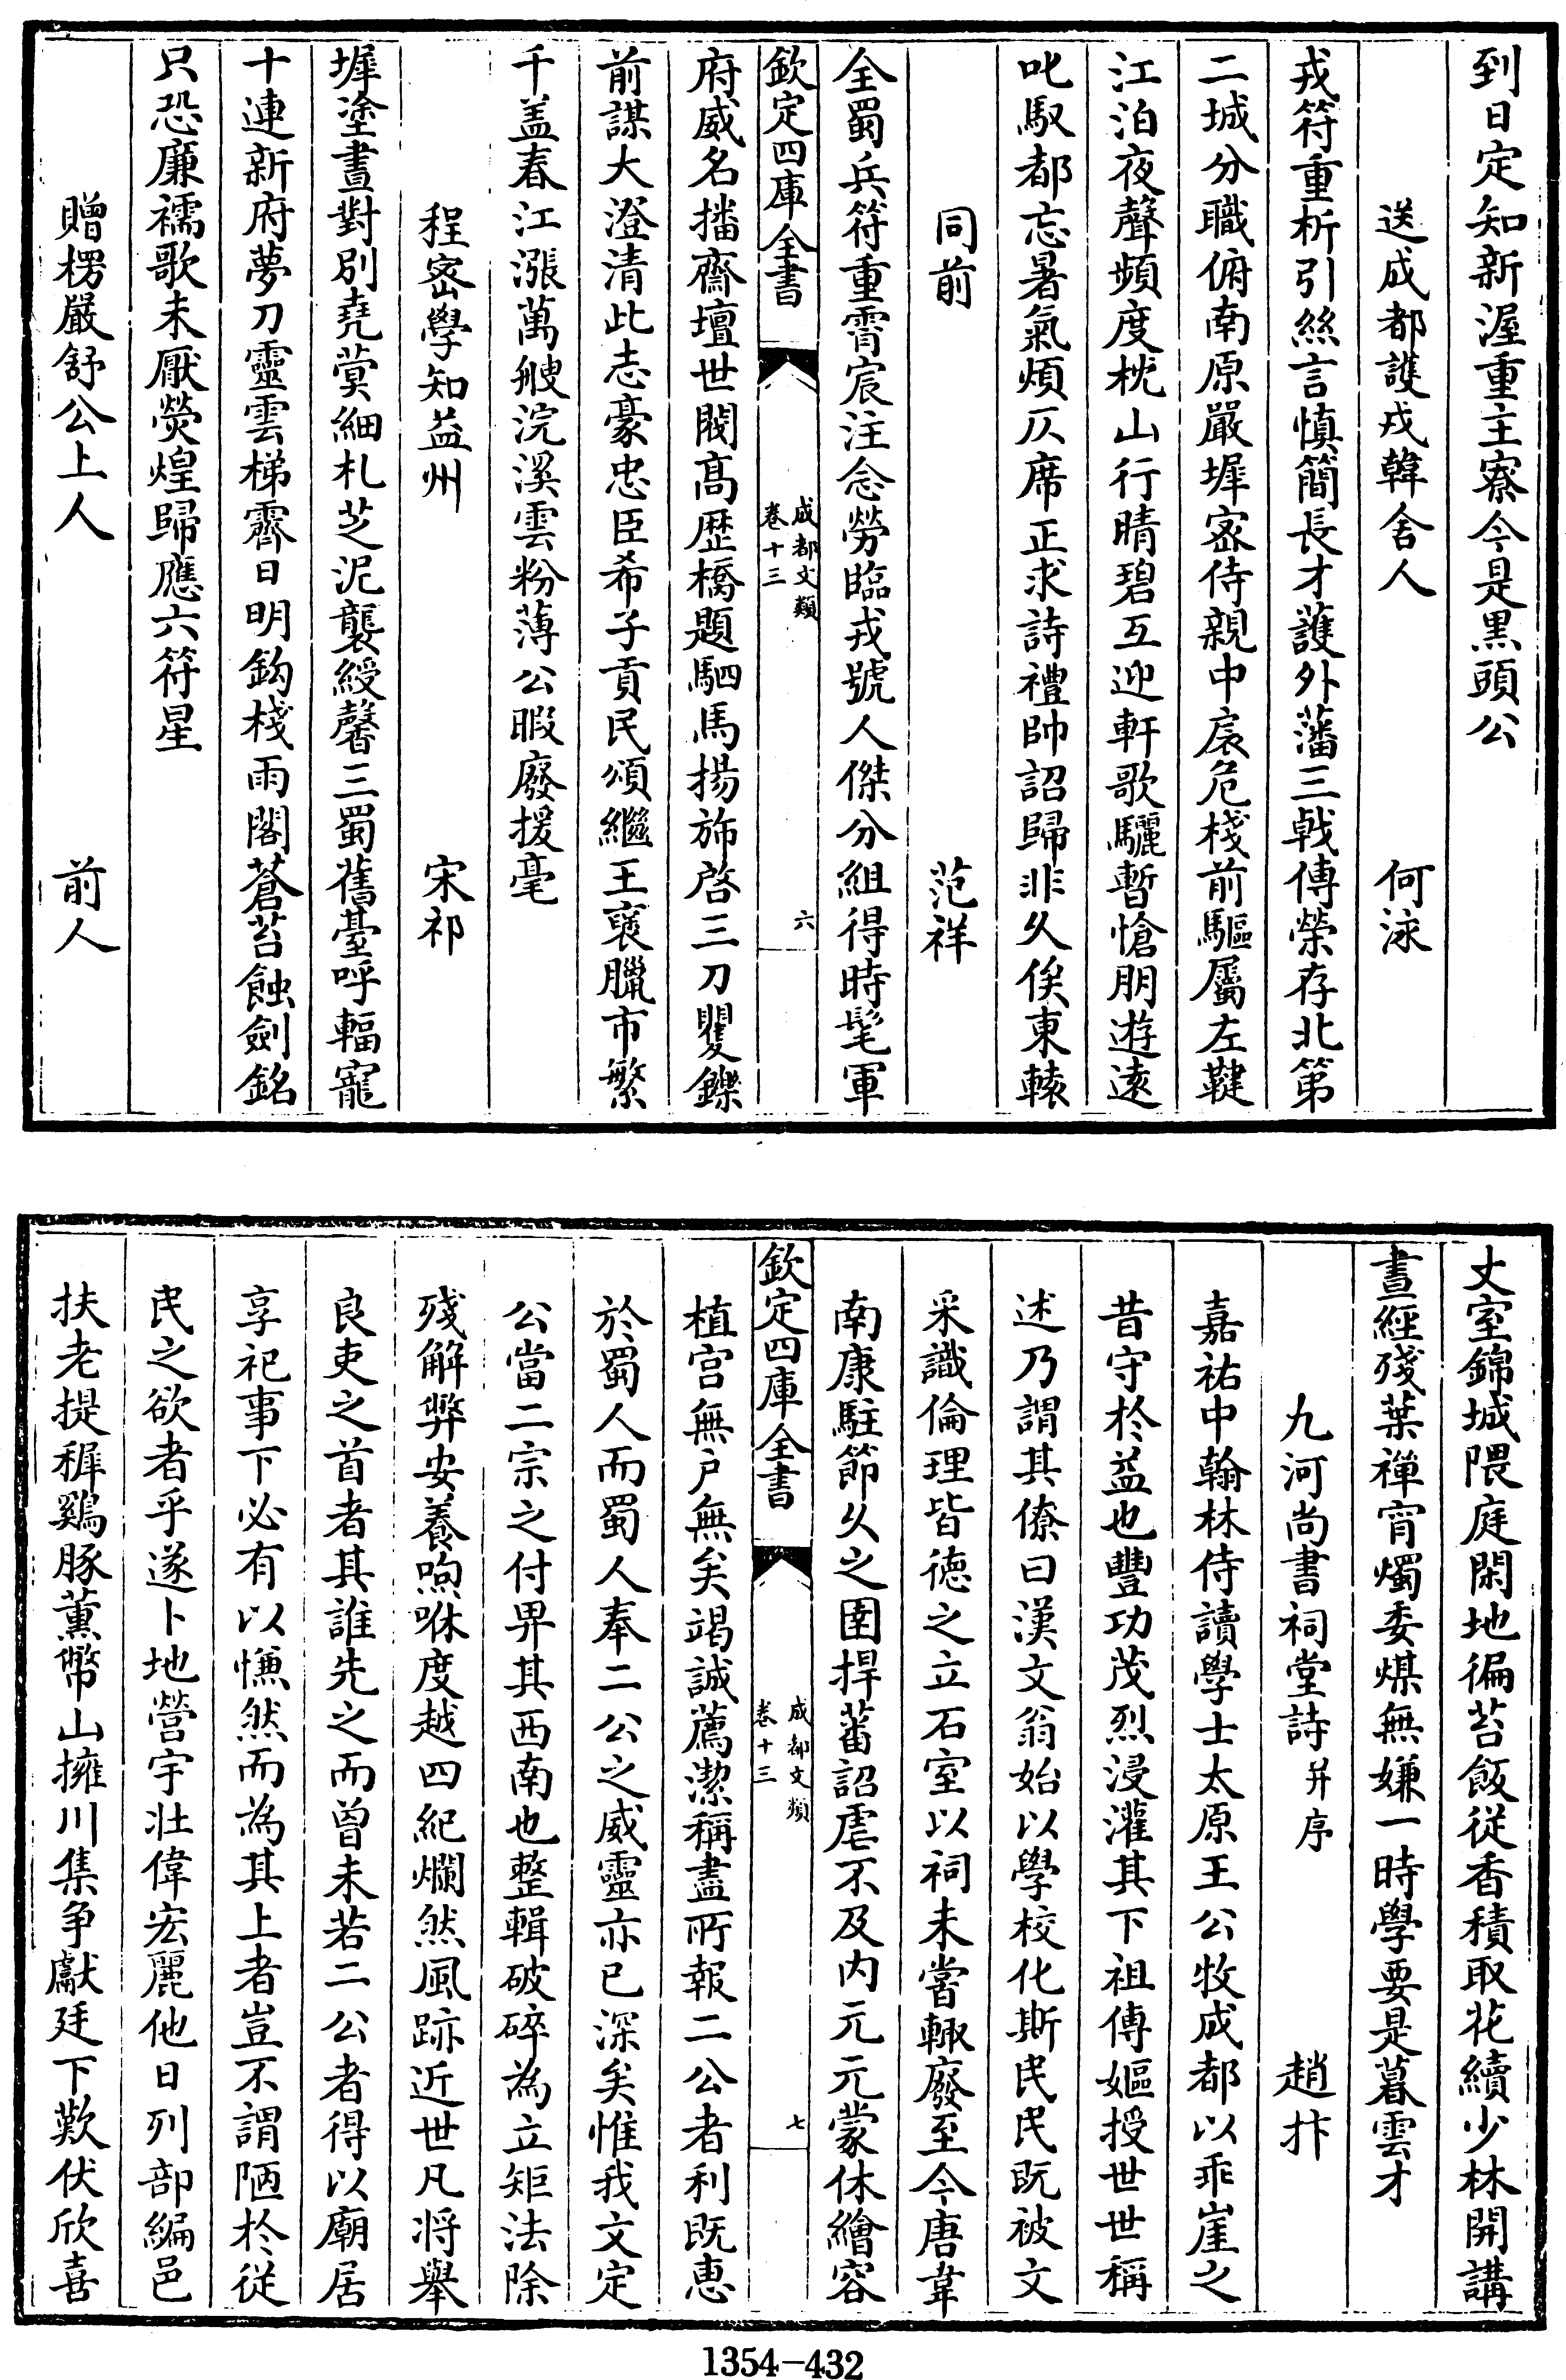 到日定知新渥重主寮今是黒頭公
送成都護戎韓舎人 何泳
戎符重析引絲言慎簡長才護外藩三戟傳榮存北第
二城分職俯南原嚴墀宻侍親中扆危棧前驅屬左鞬
江泊夜聲頻度枕山行晴碧互迎軒歌驪暫愴朋遊逺
叱馭都忘暑氣煩仄席正求詩禮帥詔歸非久俟東轅
同前 范祥
全蜀兵符重霄宸注念勞臨戎號人傑分組得時髦軍
欽定四庫全書 成都文類 卷十三 六
府威名播齋壇世閥髙歴橋題駟馬揚斾啓三刀矍鑠
前謀大澄清此志豪忠臣希子貢民頌繼王褒臘市繁
千盖春江漲萬艘浣溪雲粉薄公暇廢援毫
程宻學知益州 宋祁
墀塗晝對別堯蓂細札芝泥襲綬馨三蜀舊臺呼輻寵
十連新府夢刀靈雲梯霽日明鈎棧雨閣蒼苔蝕劍銘
只恐廉襦歌未厭熒煌歸應六符星
贈楞嚴舒公上人 前人
丈室錦城隈庭閑地徧苔飯從香積取花續少林開講
晝經殘葉禪宵燭委煤無嫌一時學要是暮雲才
九河尚書祠堂詩并序 趙抃
嘉祐中翰林侍讀學士太原王公牧成都以乖崖之
昔守於益也豐功茂烈浸灌其下祖傳嫗授世世稱
述乃謂其僚曰漢文翁始以學校化斯民民既被文
采識倫理皆徳之立石室以祠未嘗輙廢至今唐韋
南康駐節久之圉捍蕃詔虐不及内元元蒙休繪容
欽定四庫全書 成都文類 卷十三 七
植宫無戸無矣竭誠薦潔稱盡所報二公者利既恵
於蜀人而蜀人奉二公之威靈亦已深矣惟我文定
公當二宗之付畀其西南也整輯破碎為立矩法除
殘解弊安養喣咻度越四紀爛然風跡近世凡將舉
良吏之首者其誰先之而曽未若二公者得以廟居
享祀事下必有以慊然而為其上者豈不謂陋於從
民之欲者乎遂卜地營宇壮偉宏麗他日列部編邑
扶老提穉鷄豚薰幣山擁川集争獻廷下歎伏欣喜
1354-432